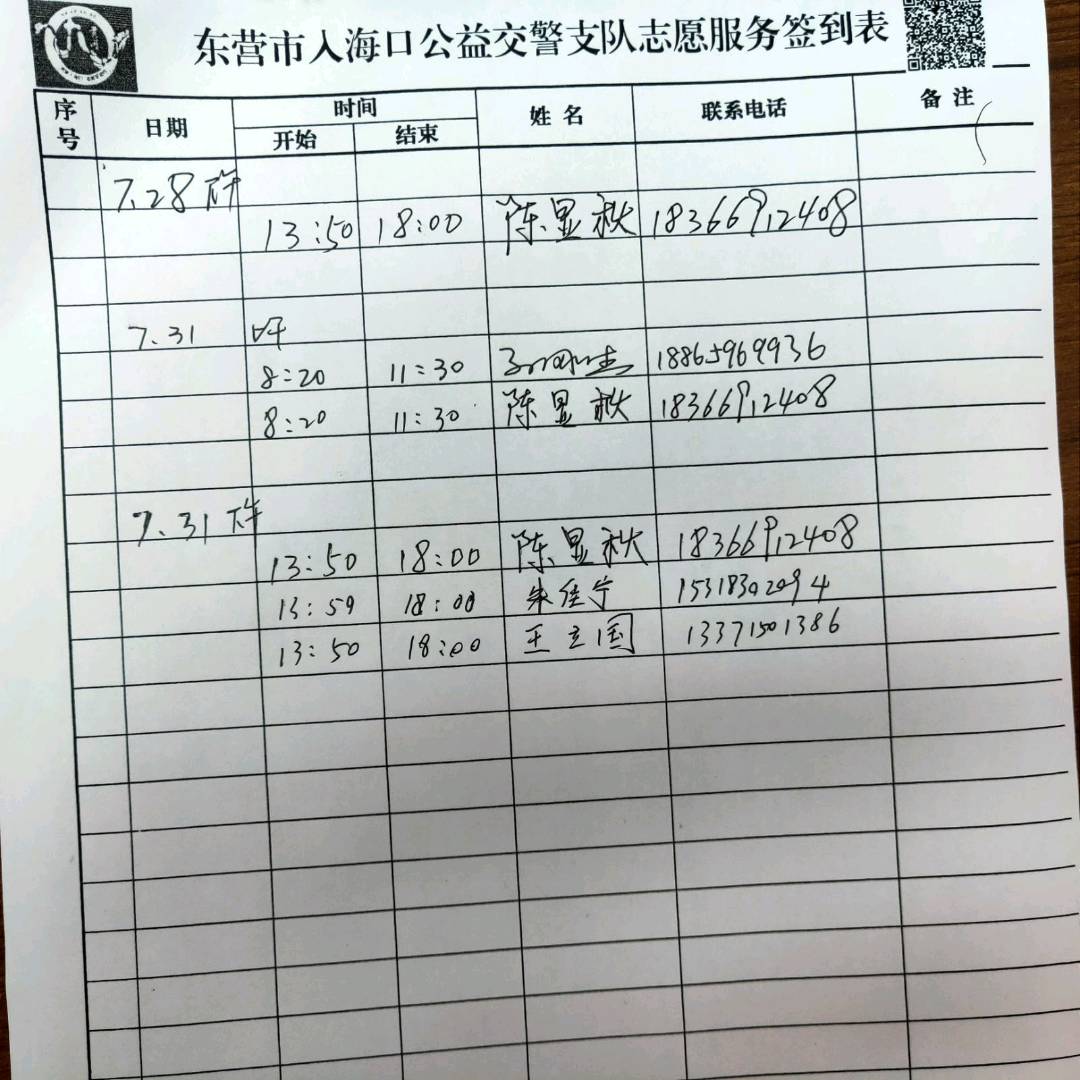 东营市入海口公益交警支队志愿服务签到表
序号 日期 时间 姓名 联系电话 备注
开始 结束
7.28 下午
13:50 18:00 陈显秋 18366912408
7.31 上午
8:20 11:30 18865969936
8:20 11:30 陈显秋 18366912408
7.31 下午
13:50 18:00 陈显秋 18366912408
13:50 18:00 朱佳宁 15318302094
13:50 18:00 王立国 13371501386